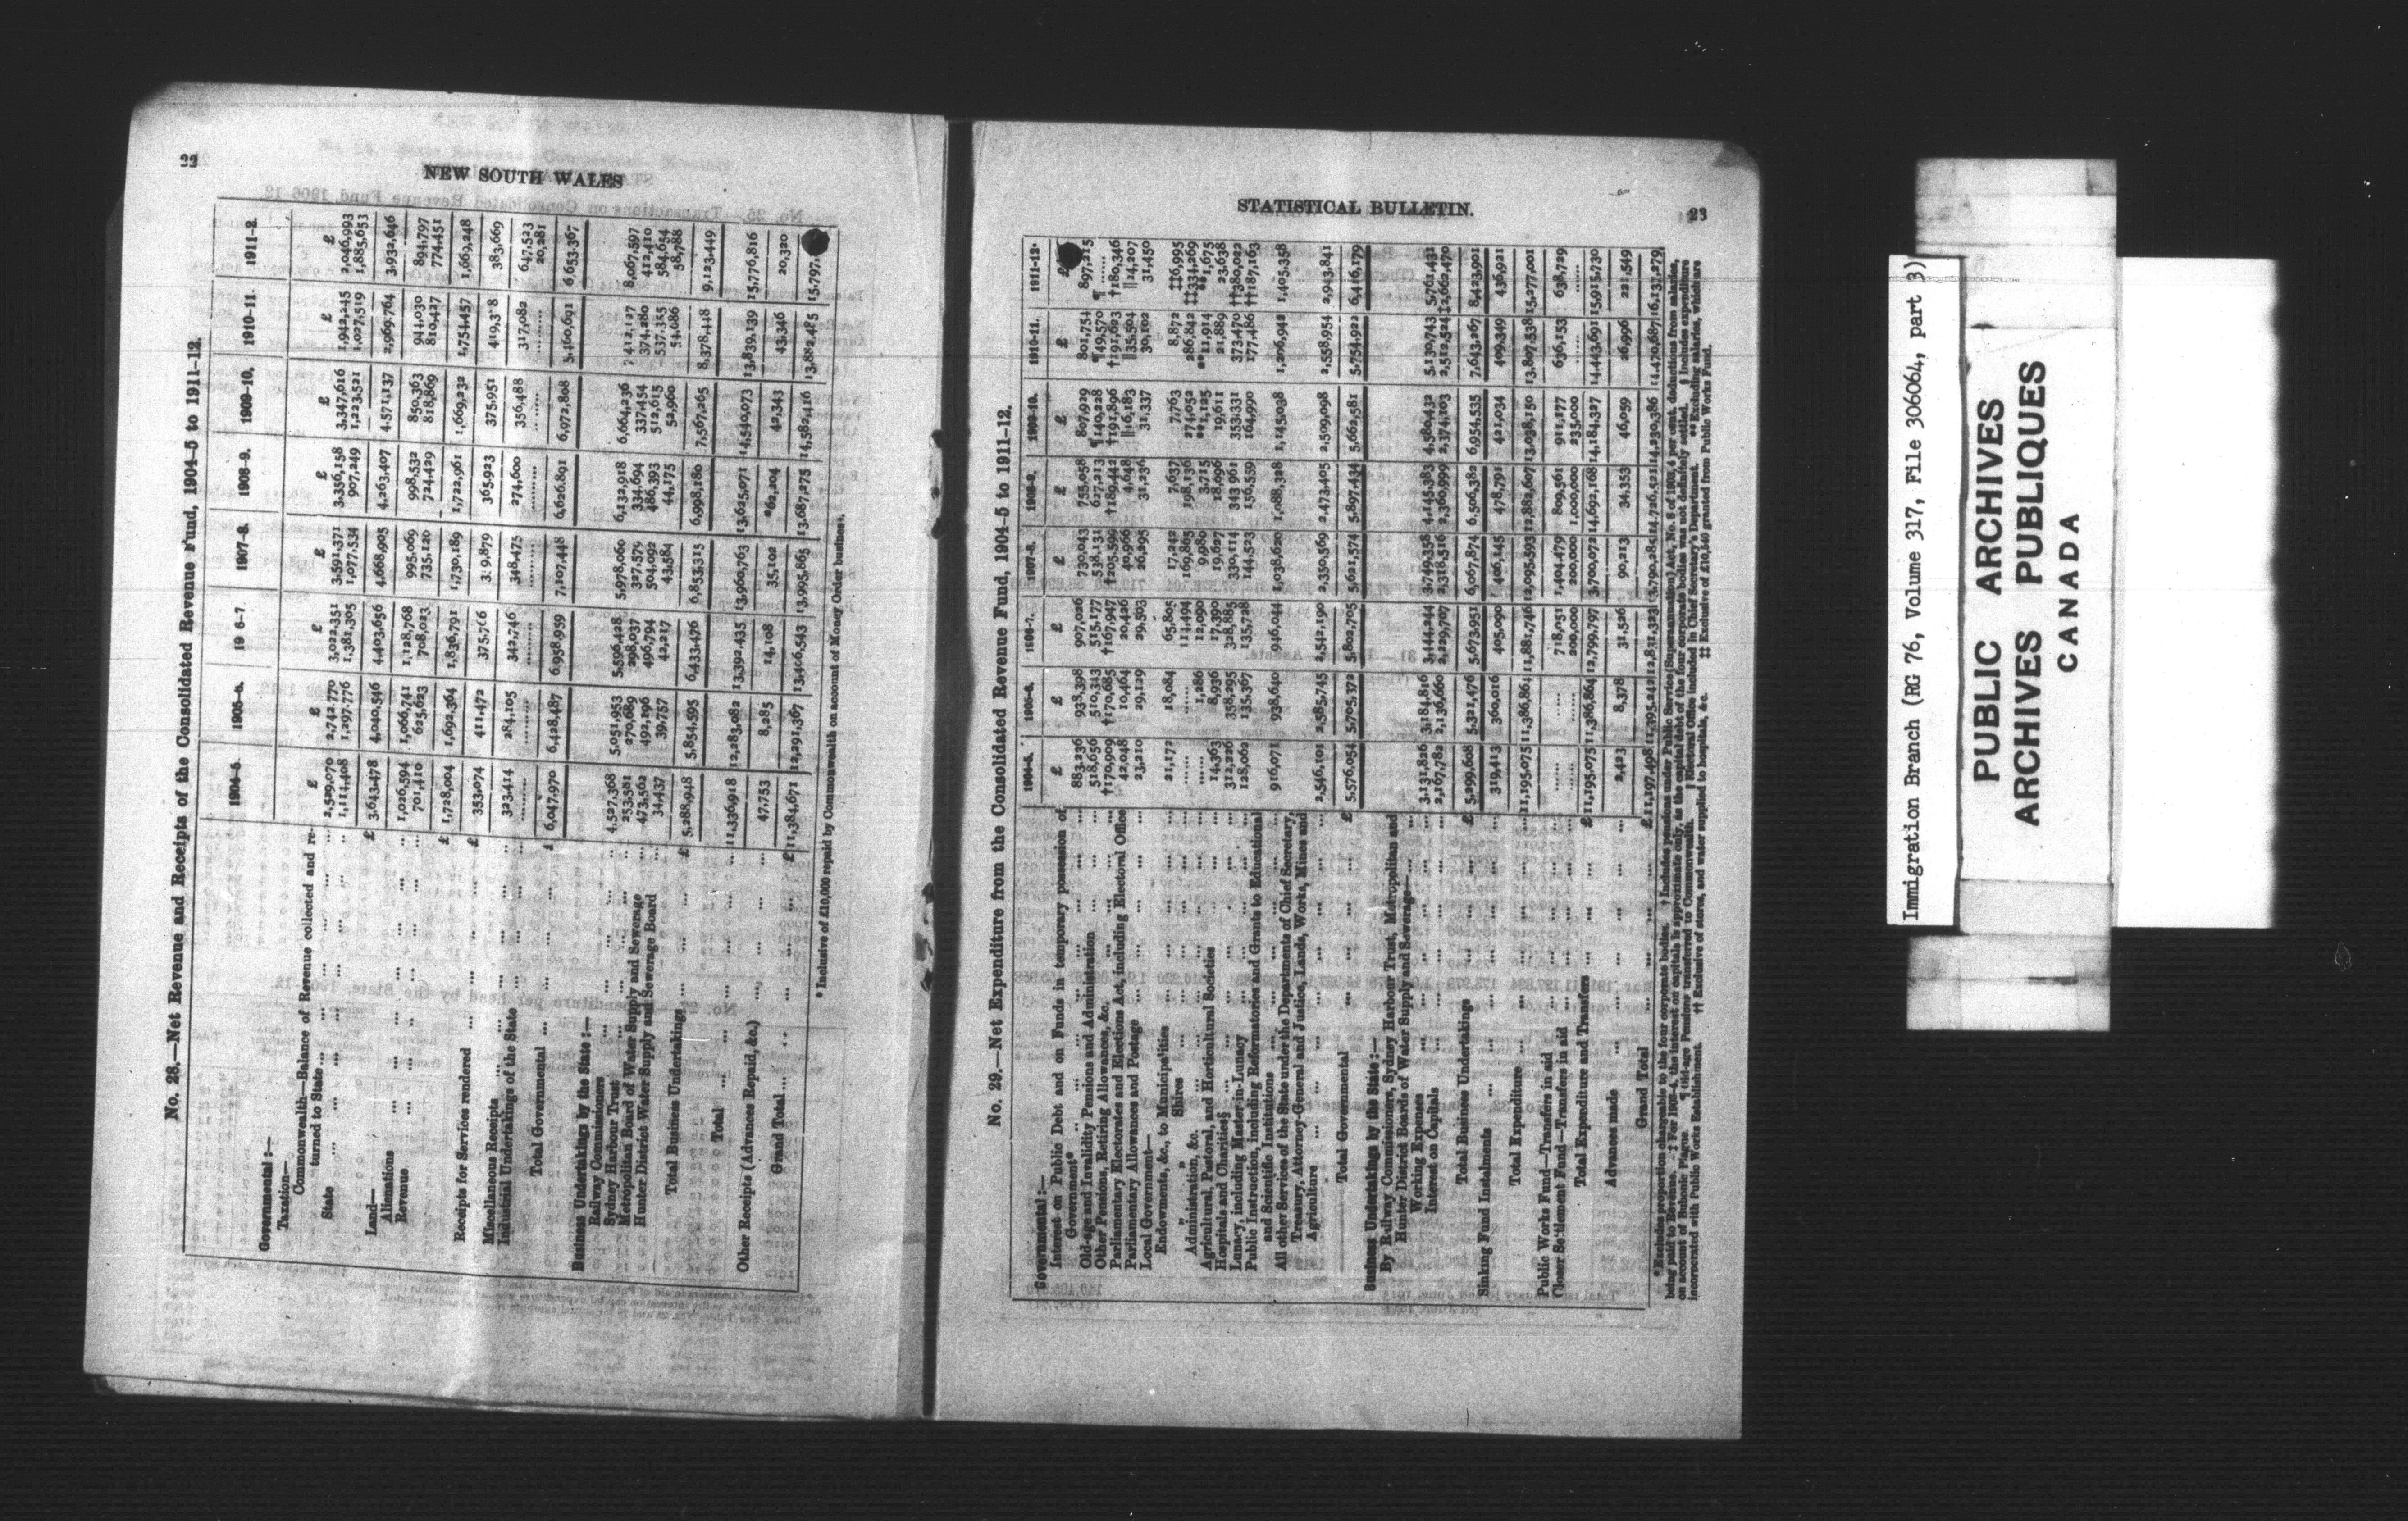 22
NEW SOUTH WALES
No. 28.—Net Revenue and Receipts of the Consolidated Revenue Fund, 1904-5 to 1911-12.
1904-5. 1905-6. 19 6-7. 1907-8. 1908-9. 1909-10. 1910-11. 1911-2.
Governmental :—
Taxation— £ £ £ £ £ £ £ £
Commonwealth—Balance of Revenue collected and re-
turned to State ... 2,529,070 2,742,770 3,022,351 3,591,371 3,356,158 3,347,616 1,942,245 2,046,993
State ... 1,114,408 1,297,776 1,381,305 1,077,534 907,249 1,223,521 1,027,519 1,885,653
£ 3,643,478 4,040,546 4,403,656 4,668,905 4,263,407 4,571,137 2,969,764 3,932,646
Land—
Alienations ... 1,026,594 1,066,741 1,128,768 995,069 998,532 850,363 944,030 894,797
Revenue ... 701,410 625,623 708,023 735,120 724,429 818,869 810,427 774,451
£ 1,728,004 1,692,364 1,836,791 1,730,189 1,722,961 1,669,232 1,754,457 1,669,248
Receipts for Services rendered ... £ 353,074 411,472 375,766 365,923 375,951 383,669
Miscellaneous Receipts ... 323,414 284,105 342,746 348,475 274,600 356,488 317,082 647,523
Industrial Undertakings of the State ... 20,281
Total Governmental ... £ 6,047,970 6,428,487 6,958,959 7,107,448 6,626,891 6,972,808 5,460,691 6,653,367
Business Undertakings by the State :—
Railway Commissioners ... 4,527,368 5,051,953 5,596,428 5,978,060 6,132,918 6,664,236 8,067,597
Sydney Harbour Trust ... 253,581 270,689 298,037 327,579 334,694 337,454 374,280 412,410
Metropolitan Board of Water Supply and Sewerage 473,562 492,196 496,794 504,092 486,393 512,615 537,355 584,654
Hunter District Water Supply and Sewerage Board 34,437 39,757 42,217 43,584 44,175 52,960 54,686 58,788
Total Business Undertakings ... £ 5,288,948 5,854,595 6,433,476 6,853,315 6,998,180 7,567,265 8,378,448 9,123,449
Total ... 11,336,918 12,283,082 13,392,435 13,960,763 13,625,071 14,540,073 13,839,139 15,776,816
Other Receipts (Advances Repaid, &c.) ... 47,753 8,285 14,108 35,102 *62,204 42,343 43,346 20,320
Grand Total ... £ 11,384,671 12,291,367 13,406,543 13,995,865 13,687,275 14,582,416 13,882,485 15,797,
* Inclusive of £10,000 repaid by Commonwealth on account of Money Order business.
STATISTICAL BULLETIN.
23
No. 29.—Net Expenditure from the Consolidated Revenue Fund, 1904-5 to 1911-12.
1904-5. 1905-6. 1906-7. 1907-8. 1908-9. 1909-10. 1910-11. 1911-12.
Governmental :— £ £ £ £ £ £ £ £
Interest on Public Debt and on Funds in temporary possession of
Government* ... 883,236 938,398 907,026 730,043 755,058 807,929 801,754 897,215
Old-age and Invalidity Pensions and Administration ... 518,656 510,343 515,177 538,131 627,213 ¶140,228 ¶49,570 ¶ ......
Other Pensions, Retiring Allowances, &c. ... †170,909 †170,685 †167,947 †205,599 †189,442 †191,896 †191,623 †180,346
Parliamentary Electorates and Elections Act, including Electoral Office 42,048 10,464 20,426 40,966 4,648 ||16,183 ||35,504 ||14,207
Parliamentary Allowances and Postage ... 23,210 29,129 29,503 26,295 31,236 31,337 30,102 31,450
Local Government—
Endowments, &c., to Municipalities ... 21,172 18,084 65,805 17,242 7,637 7,763 8,872 ‡‡26,995
" Shires ... 114,494 169,865 198,136 274,052 286,842 ‡‡334,269
Administration, &c. ... 1,286 12,090 9,980 3,715 **1,125 **11,914 **1,675
Agricultural, Pastoral, and Horticultural Societies ... 14,363 8,936 17,390 19,627 18,096 19,611 21,889 23,638
Hospitals and Charities§ ... 312,226 358,295 328,885 330,114 343,961 353,331 373,470 ††380,022
Lunacy, including Master-in-Lunacy ... 128,062 135,367 135,728 144,523 156,559 164,990 177,486 ††187,163
Public Instruction, including Reformatories and Grants to Educational
and Scientific Institutions ... 916,071 938,640 946,044 1,038,620 1,088,328 1,145,038 1,206,942 1,405,358
All other Services of the State under the Departments of Chief Secretary,
Treasury, Attorney-General and Justice, Lands, Works, Mines and
Agriculture ... 2,546,101 2,585,745 2,542,190 2,350,569 2,473,405 2,509,098 2,558,954 2,943,841
Total Governmental ... £ 5,576,054 5,705,372 5,802,705 5,621,574 5,897,434 5,662,581 5,754,922 6,416,179
Business Undertakings by the State :—
By Railway Commissioners, Sydney Harbour Trust, Metropolitan and
Hunter District Boards of Water Supply and Sewerage—
Working Expenses ... 3,131,826 3,184,816 3,444,244 3,749,358 4,145,383 4,580,432 5,130,743 5,761,431
Interest on Capitals ... 2,167,782 2,136,660 2,229,707 2,318,516 2,360,999 2,374,103 2,512,524 ‡2,662,470
Total Business Undertakings ... £ 5,299,608 5,321,476 5,673,951 6,067,874 6,506,382 6,954,535 7,643,267 8,423,901
Sinking Fund Instalments ... 319,413 360,016 405,090 406,145 478,791 421,034 409,349 436,921
Total Expenditure ... 11,195,075 11,386,864 11,881,746 12,095,593 12,882,607 13,038,150 13,807,538 15,277,001
Public Works Fund—Transfers in aid ... 718,051 1,404,479 809,561 911,177 636,153 638,729
Closer Settlement Fund—Transfers in aid ... 200,000 200,000 1,000,000 235,000
Total Expenditure and Transfers ... £ 11,195,075 11,386,864 12,799,797 13,700,072 14,692,168 14,184,327 14,443,691 15,915,730
Advances made ... 2,423 8,378 31,526 90,213 34,353 46,059 26,996 221,549
Grand Total ... £ 11,197,498 11,395,242 12,831,323 13,790,285 14,726,521 14,230,386 14,470,687 16,137,279
* Excludes proportion chargeable to the four corporate bodies. † Includes pensions under Public Service (Superannuation) Act, No. 8 of 1903, 4 per cent. deductions from salaries,
being paid to Revenue. ‡ For 1903-4, the interest on capitals is approximate only, as the capital debt of the four corporate bodies was not definitely settled. § Includes expenditure
on account of Bubonic Plague. ¶ Old-age Pensions transferred to Commonwealth. || Electoral Office included in Chief Secretary's Department. ** Excluding salaries, which are
incorporated with Public Works Establishment. †† Exclusive of stores, and water supplied to hospitals, &c. ‡‡ Exclusive of £10,540 granted from Public Works Fund.
Immigration Branch (RG 76, Volume 317, File 306064, part 3)
PUBLIC ARCHIVES
ARCHIVES PUBLIQUES
CANADA